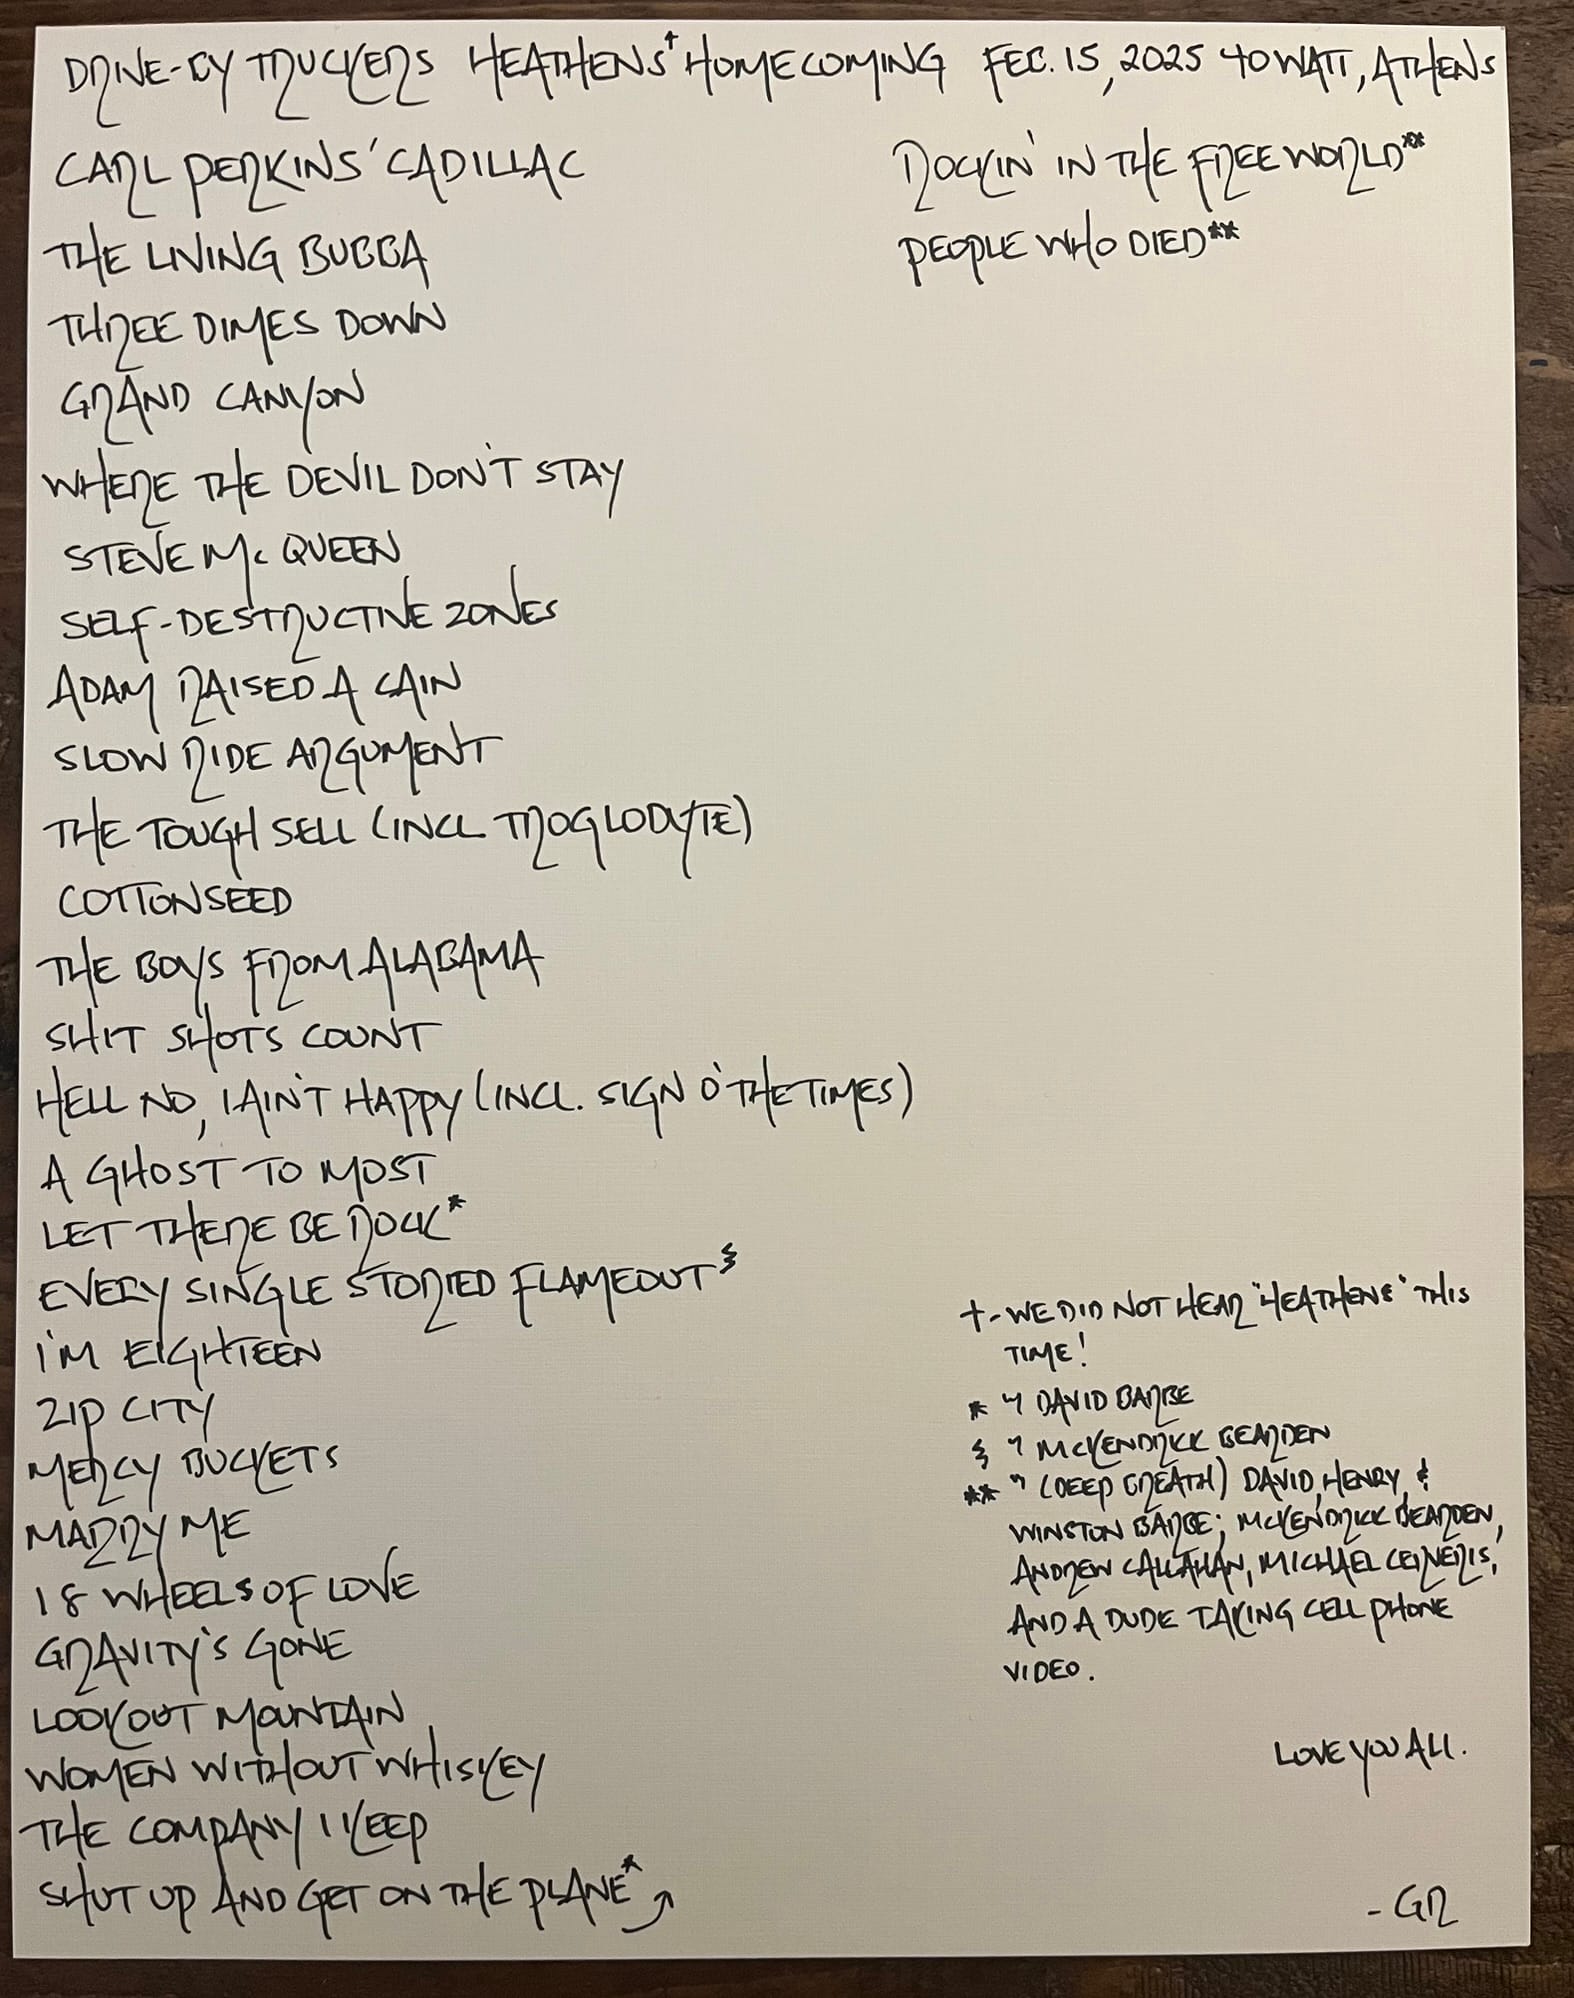 DRIVE-BY TRUCKERS HEATHENS† HOMECOMING FEB. 15, 2025 40 WATT, ATHENS
CARL PERKINS' CADILLAC
THE LIVING BUBBA
THREE DIMES DOWN
GRAND CANYON
WHERE THE DEVIL DON'T STAY
STEVE McQUEEN
SELF-DESTRUCTIVE ZONES
ADAM RAISED A CAIN
SLOW RIDE ARGUMENT
THE TOUGH SELL (INCL TROGLODYTE)
COTTONSEED
THE BOYS FROM ALABAMA
SHIT SHOTS COUNT
HELL NO, I AIN'T HAPPY (INCL. SIGN O' THE TIMES)
A GHOST TO MOST
LET THERE BE ROCK*
EVERY SINGLE STORIED FLAMEOUT§
I'M EIGHTEEN
ZIP CITY
MERCY BUCKETS
MARRY ME
18 WHEELS OF LOVE
GRAVITY'S GONE
LOOKOUT MOUNTAIN
WOMEN WITHOUT WHISKEY
THE COMPANY I KEEP
SHUT UP AND GET ON THE PLANE*
ROCKIN' IN THE FREE WORLD**
PEOPLE WHO DIED**
†- WE DID NOT HEAR "HEATHENS" THIS
TIME!
* w/ DAVID BARBE
§ " McKENDRICK BEARDEN
** " (DEEP BREATH) DAVID, HENRY, &
WINSTON BARBE; McKENDRICK BEARDEN,
ANDREW CALLAHAN, MICHAEL
AND A DUDE TAKING CELL PHONE
VIDEO.
LOVE YOU ALL.
- GR